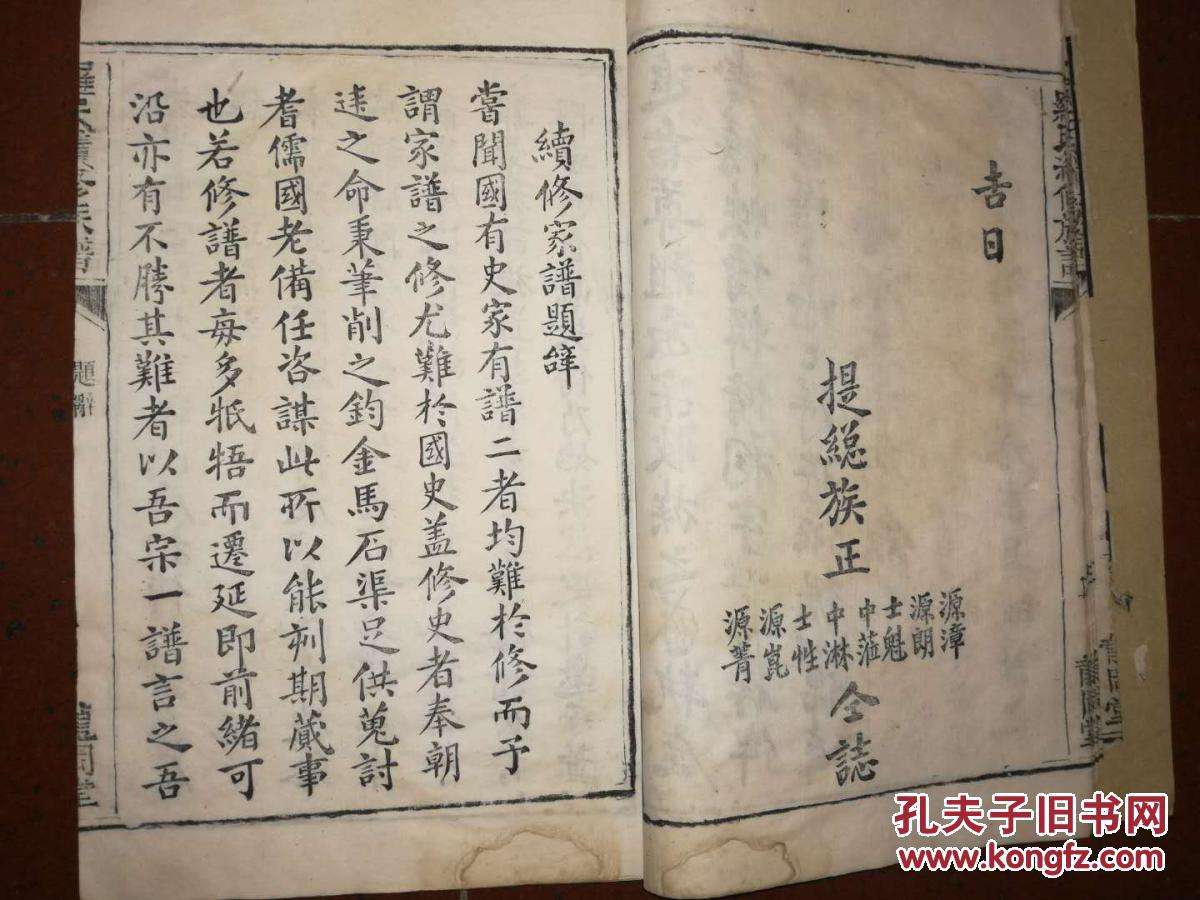 吉日
提總族正
源漳
源朗
士魁
中淋
士性
源崑
源菁
仝誌
續修家譜題辭
嘗聞國有史家有譜二者均難於修而予
謂家譜之修尤難於國史盖修史者奉朝
廷之命秉筆削之鈞金馬石渠足供蒐討
耆儒國老備任咨謀此所以能刻期蕆事
也若修譜者每多牴牾而遷延即前緒可
沿亦有不勝其難者以吾宗一譜言之吾
題辭
孔夫子旧书网
www.kongfz.com